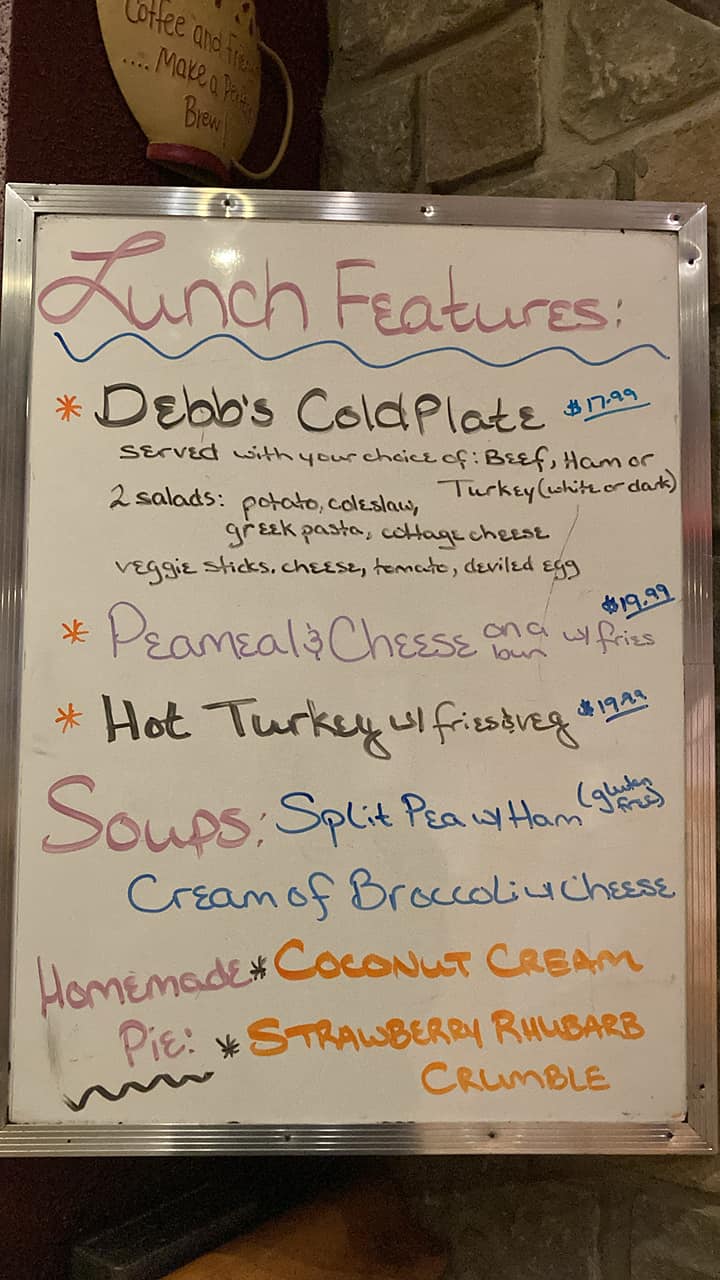 Coffee and Frie
.... Make a Perfe
Brew!
Lunch Features:
* Debb's Cold Plate $17.99
served with your choice of: Beef, Ham or
Turkey (white or dark)
2 salads: potato, coleslaw,
greek pasta, cottage cheese
veggie sticks, cheese, tomato, deviled egg
$19.99
* Peameal & Cheese on a bun w/ fries
* Hot Turkey w/ fries & veg $19.99
Soups: Split Pea w/ Ham (gluten free)
Cream of Broccoli w/ Cheese
Homemade * Coconut Cream
Pie: * Strawberry Rhubarb
Crumble